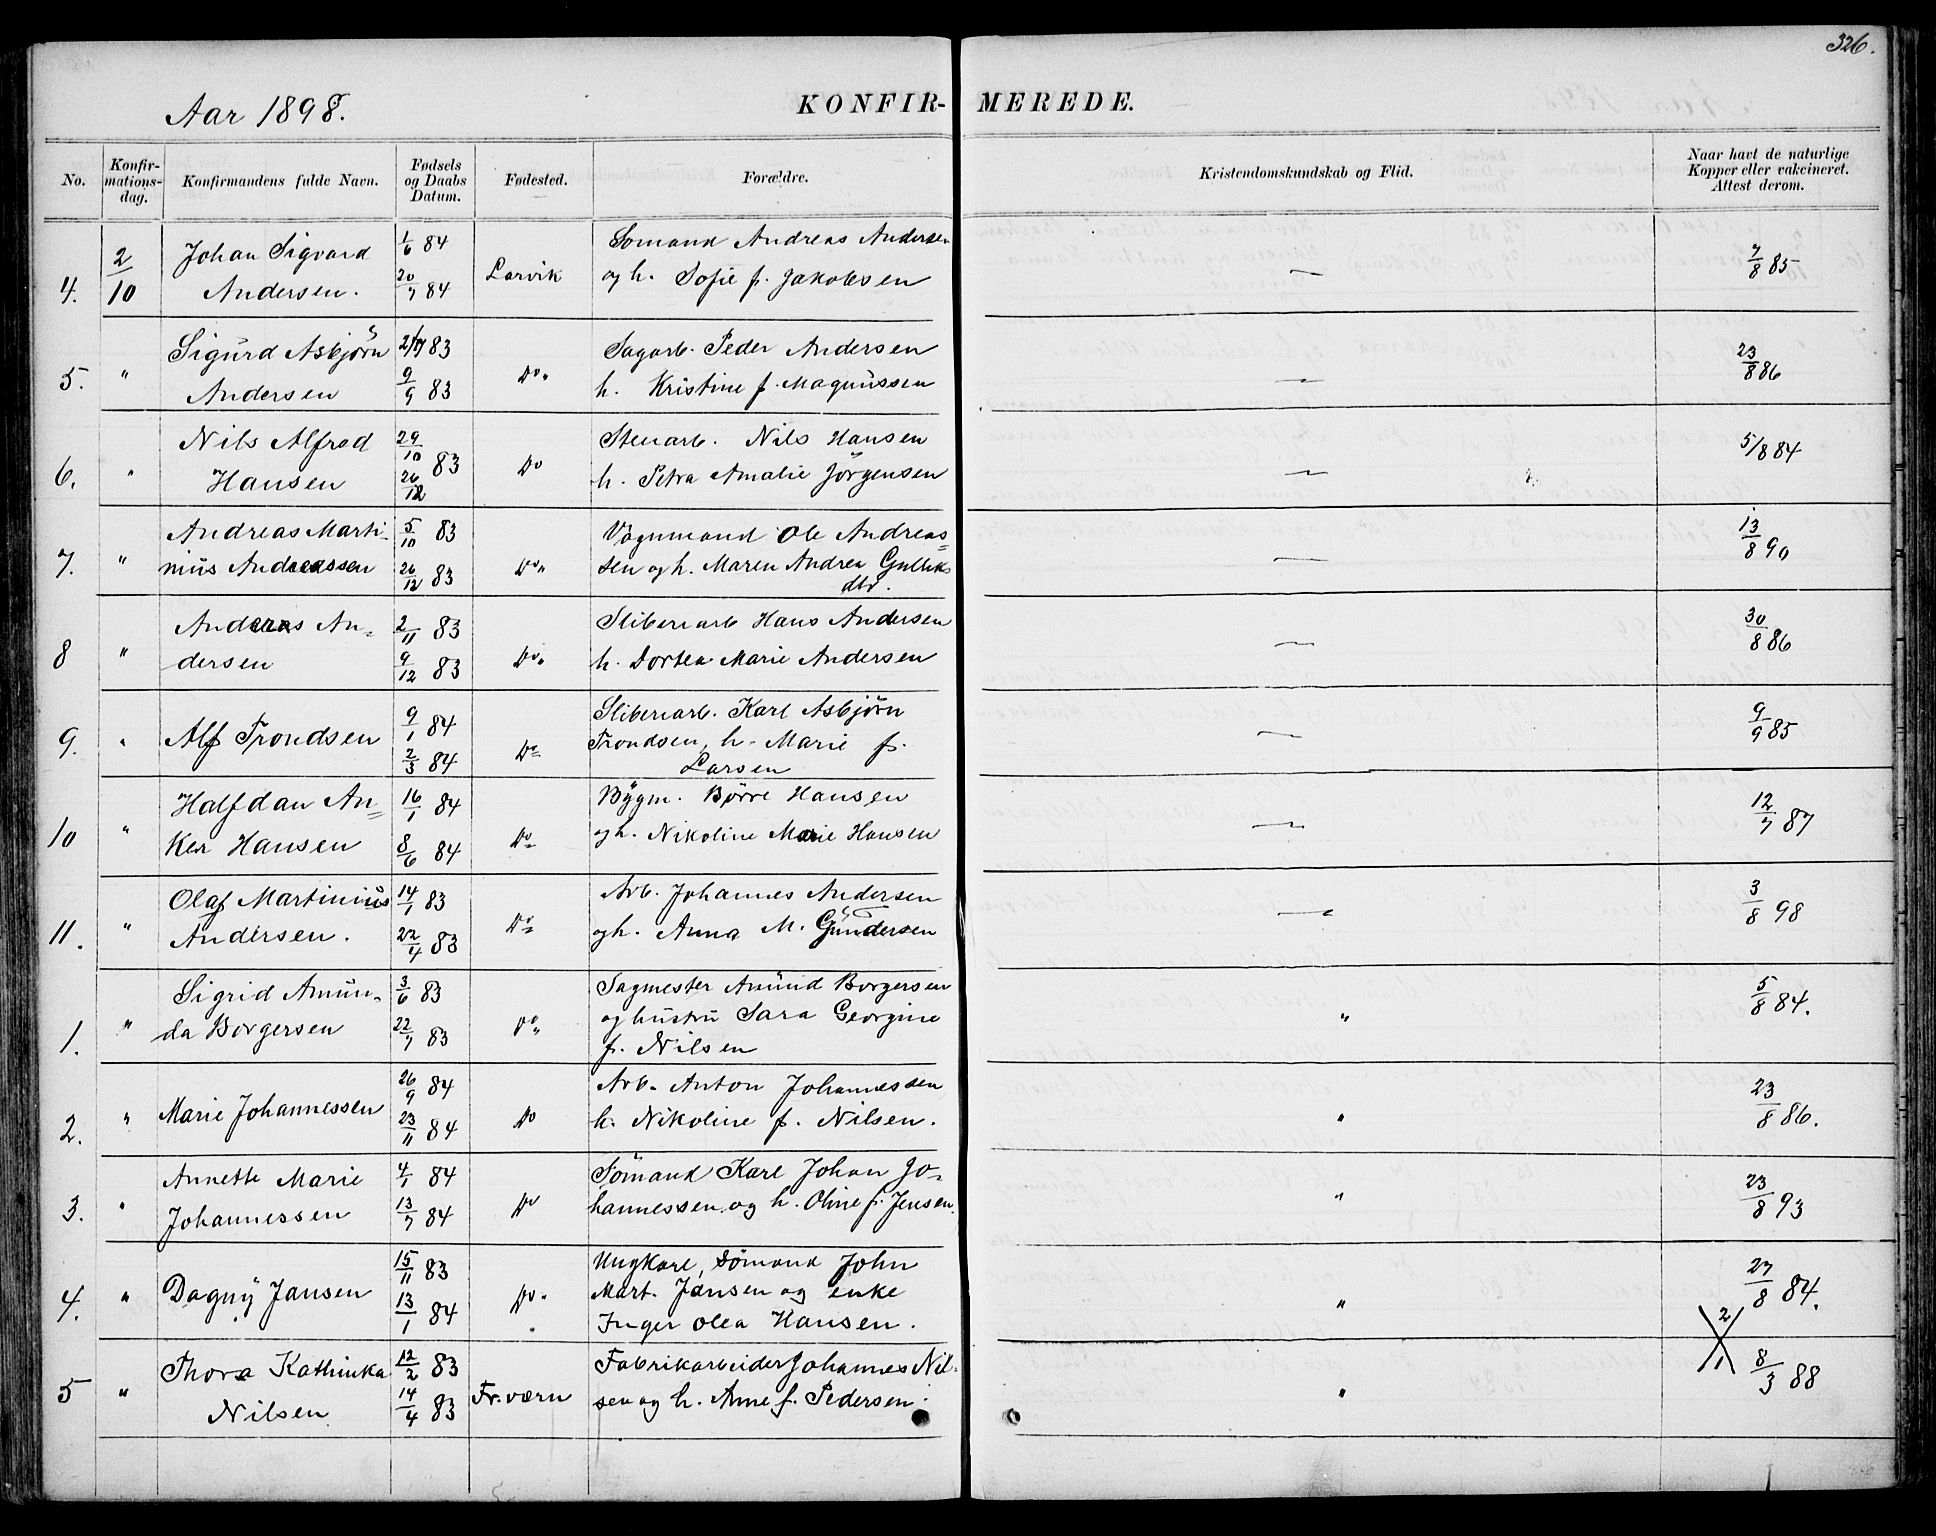 326.
Aar 1898.
KONFIR-MEREDE.
No. Konfirmationsdag. Konfirmandens fulde Navn. Fødsels og Daabs Datum. Fødested. Forældre. Kristendomskundskab og Flid. Naar havt de naturlige Kopper eller vakcineret. Attest derom.
4. 2/10 Johan Sigvard 1/6 84 Larvik Sømand Andreas Andersen — 7/8 85
Andersen. 20/7 84 og h. Sofie f. Jakobsen
5. " Sigurd Asbjørn 21/7 83 Do. Sagarb. Peder Andersen — 23/8 86
Andersen 9/9 83 h. Kristine f. Magnussen
6. " Nils Alfred 29/10 83 Do Stenarb. Nils Hansen — 5/8 84
Hansen 26/12 h. Petra Amalie Jörgensen
7. " Andreas Marti- 5/10 83 Do. Vognmand Ole Andreas= — 13/8 90
nius Andreassen 26/12 83 sen og h. Maren Andrea Gulliks
dtr.
8 " Andreas An= 2/11 83 Do. Sliberiarb Hans Andersen — 30/8 86
dersen 9/12 83 h. Dortea Marie Andersen
9. " Alf Trondsen 9/1 84 Do Sliberiarb. Karl Asbjørn — 9/9 85
2/3 84 Trondsen, h. Marie f.
Larsen
10 " Halfdan An= 16/1 84 Do Bygm. Børre Hansen — 12/7 87
ker Hansen 8/6 84 og h. Nikoline Marie Hansen
11. " Olaf Martinius 14/1 83 Do Arb. Johannes Andersen — 3/8 98
Andersen. 22/4 83 og h. Anna M. Gundersen
1. " Sigrid Amun- 3/6 83 Do. Sagmester Amund Borgersen " 5/8 84.
da Borgersen 22/7 83 og hustru Sara Georgine
f. Nilsen
2. " Marie Johannessen 26/9 84 Do Arb. Anton Johannessen " 23/8 86.
23/11 84 h. Nikoline f. Nilsen.
3. " Annette Marie 4/1 84 Do Sömand Karl Johan Jo- " 23/8 93
Johannessen 13/7 84 hannessen og h. Oline f. Jensen.
4. " Dagny Jansen 15/11 83 Do. Ungkarl, Sømand John " 27/8 84.
13/1 84 Mart. Jansen og enke
Inger Olea Hansen.
5 " Thora Kathinka 12/2 83 Fr.værn Fabrikarbeider Johannes Nil- " 8/3 88
Nilsen 14/4 83 sen og h. Anne f. Pedersen.